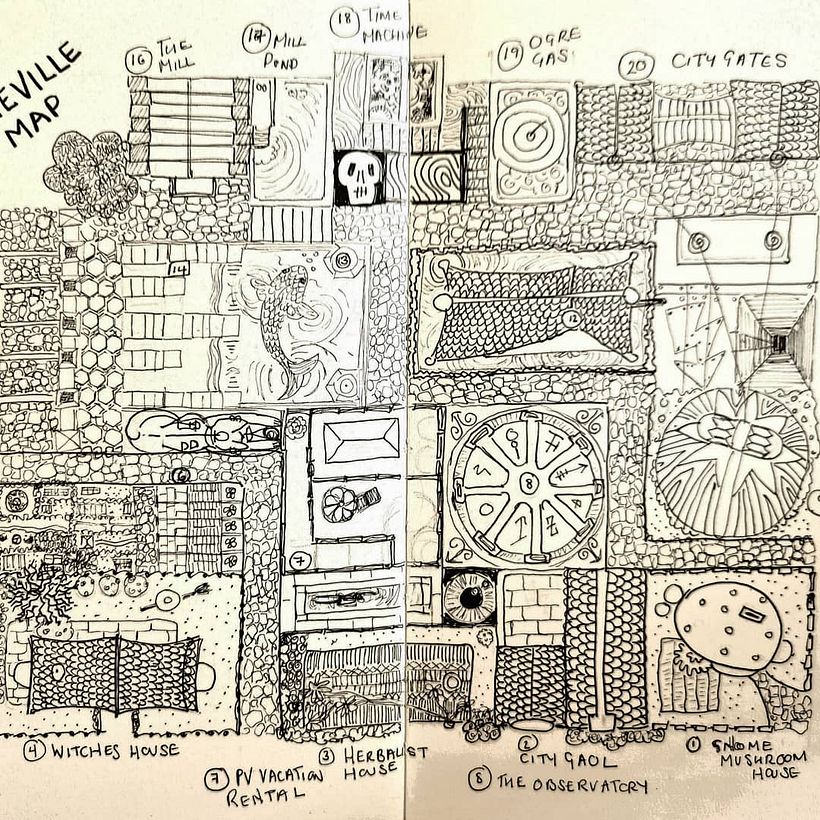 EVILLE
MAP
16 THE
MILL
17 MILL
POND
18 TIME
MACHINE
19 OGRE
GAS
20 CITY GATES
14
13
12
6
8
7
4 WITCHES HOUSE
7 PV VACATION
RENTAL
3 HERBALIST
HOUSE
2
CITY GAOL
8 THE OBSERVATORY
1 GNOME
MUSHROOM
HOUSE